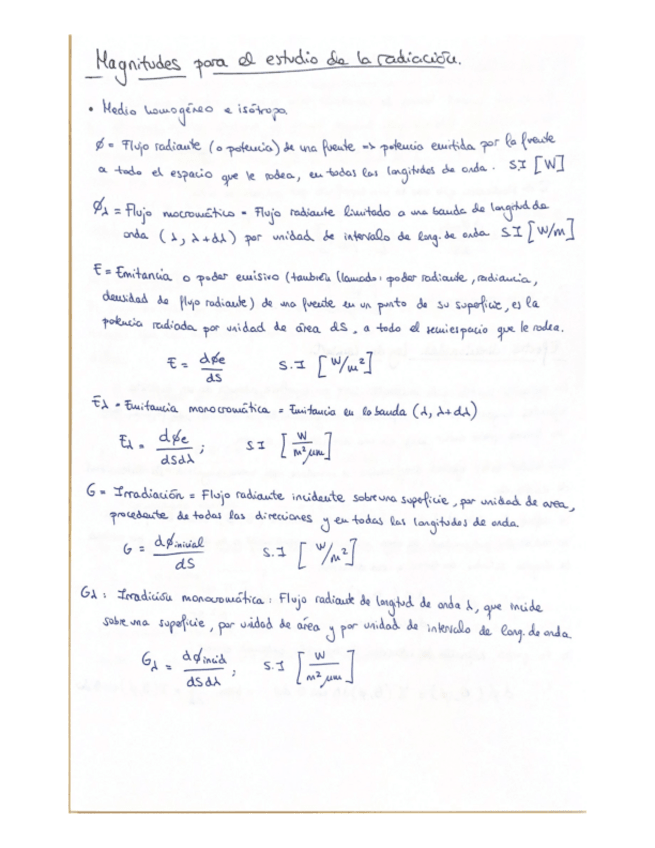 Magnitudes para el estudio de la radiación.
• Medio homogéneo e isótropo.
ø = Flujo radiante (o potencia) de una fuente => potencia emitida por la fuente
a todo el espacio que le rodea, en todas las longitudes de onda. S.I [W]
øλ = Flujo mocromático = Flujo radiante limitado a una banda de longitud de
onda (λ, λ+dλ) por unidad de intervalo de long. de onda S.I [W/m]
E = Emitancia o poder emisivo (también llamado: poder radiante, radiancia,
densidad de flujo radiante) de una fuente en un punto de su superficie, es la
potencia radiada por unidad de área dS, a todo el semiespacio que le rodea.
E = døe/dS S.I [W/m²]
Eλ = Emitancia monocromática = Emitancia en la banda (λ, λ+dλ)
Eλ = døe/dSdλ ; S.I [W/m² µm]
G = Irradiación = Flujo radiante incidente sobre una superficie, por unidad de area,
procedente de todas las direcciones y en todas las longitudes de onda.
G = døinicial/dS S.I [W/m²]
Gλ : Irradición monocromática : Flujo radiante de longitud de onda λ, que incide
sobre una superficie, por uidad de área y por unidad de intervalo de long. de onda
Gλ = døincid/dSdλ ; S.I [W/m² µm]